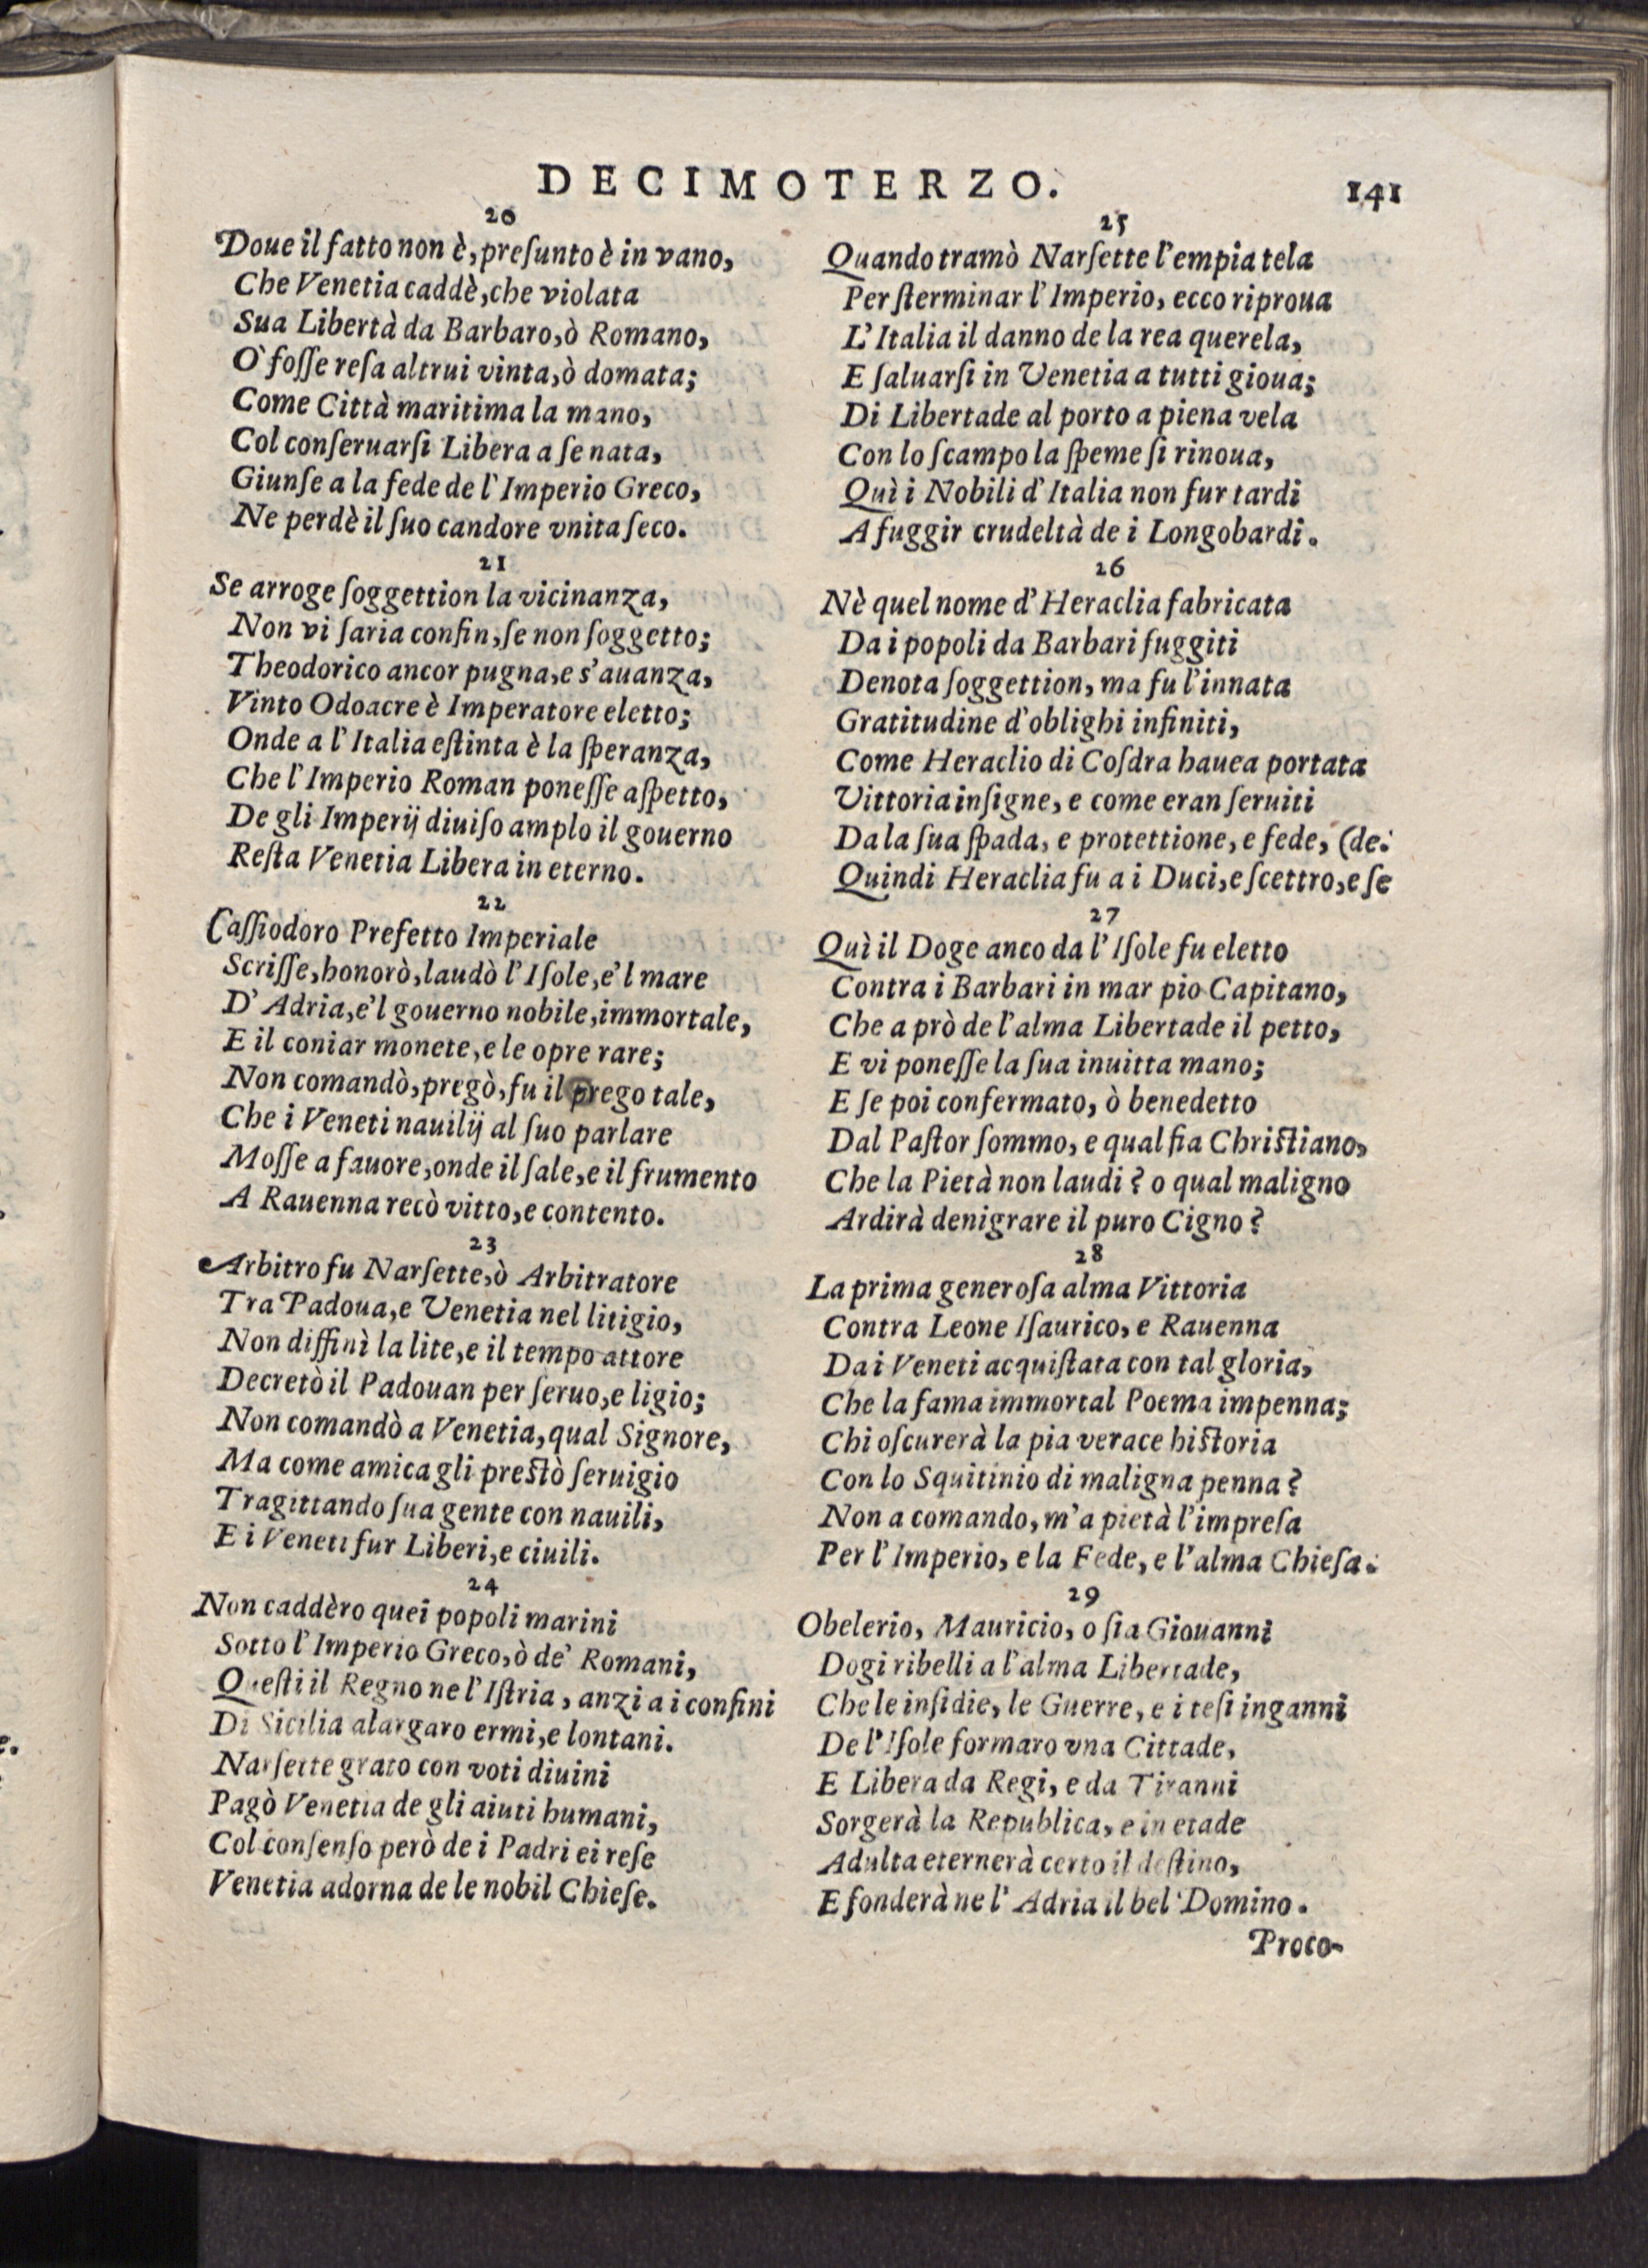 DECIMOTERZO. 141
20
Doue il fatto non è, preſunto è in vano,
Che Venetia caddè, che violata
Sua Libertà da Barbaro, ò Romano,
O' foſſe reſa altrui vinta, ò domata;
Come Città maritima la mano,
Col conſeruarſi Libera a ſe nata,
Giunſe a la fede de l'Imperio Greco,
Ne perdè il ſuo candore vnita ſeco.
21
Se arroge ſoggettion la vicinanza,
Non vi ſaria confin, ſe non ſoggetto;
Theodorico ancor pugna, e s'auanza,
Vinto Odoacre è Imperatore eletto;
Onde a l'Italia eſtinta è la ſperanza,
Che l'Imperio Roman poneſſe aſpetto,
De gli Imperij diuiſo amplo il gouerno
Reſta Venetia Libera in eterno.
22
Caſſiodoro Prefetto Imperiale
Scriſſe, honorò, laudò l'Iſole, e'l mare
D'Adria, e'l gouerno nobile, immortale,
E il coniar monete, e le opre rare;
Non comandò, pregò, fu il prego tale,
Che i Veneti nauilij al ſuo parlare
Moſſe a fauore, onde il ſale, e il frumento
A Rauenna recò vitto, e contento.
23
Arbitro fu Narſette, ò Arbitratore
Tra Padoua, e Venetia nel litigio,
Non diffinì la lite, e il tempo attore
Decretò il Padouan per ſeruo, e ligio;
Non comandò a Venetia, qual Signore,
Ma come amica gli preſtò ſeruigio
Tragittando ſua gente con nauili,
E i Veneti fur Liberi, e ciuili.
24
Non caddèro quei popoli marini
Sotto l'Imperio Greco, ò de' Romani,
Queſti il Regno ne l'Iſtria, anzi a i confini
Di Sicilia alargaro ermi, e lontani.
Narſette grato con voti diuini
Pagò Venetia de gli aiuti humani,
Col conſenſo però de i Padri ei reſe
Venetia adorna de le nobil Chieſe.
25
Quando tramò Narſette l'empia tela
Per ſterminar l'Imperio, ecco riproua
L'Italia il danno de la rea querela,
E ſaluarſi in Venetia a tutti gioua;
Di Libertade al porto a piena vela
Con lo ſcampo la ſpeme ſi rinoua,
Quì i Nobili d'Italia non fur tardi
A fuggir crudeltà de i Longobardi.
26
Nè quel nome d'Heraclia fabricata
Da i popoli da Barbari fuggiti
Denota ſoggettion, ma fu l'innata
Gratitudine d'oblighi infiniti,
Come Heraclio di Coſdra hauea portata
Vittoria inſigne, e come eran ſeruiti
Da la ſua ſpada, e protettione, e fede, (de.
Quindi Heraclia fu a i Duci, e ſcettro, e ſe
27
Quì il Doge anco da l'Iſole fu eletto
Contra i Barbari in mar pio Capitano,
Che a prò de l'alma Libertade il petto,
E vi poneſſe la ſua inuitta mano;
E ſe poi confermato, ò benedetto
Dal Paſtor ſommo, e qual fia Chriſtiano,
Che la Pietà non laudi? o qual maligno
Ardirà denigrare il puro Cigno?
28
La prima generoſa alma Vittoria
Contra Leone Iſaurico, e Rauenna
Da i Veneti acquiſtata con tal gloria,
Che la fama immortal Poema impenna;
Chi oſcurerà la pia verace hiſtoria
Con lo Squitinio di maligna penna?
Non a comando, m'a pietà l'impreſa
Per l'Imperio, e la Fede, e l'alma Chieſa.
29
Obelerio, Mauricio, o ſia Giouanni
Dogi ribelli a l'alma Libertade,
Che le inſidie, le Guerre, e i teſi inganni
De l'Iſole formaro vna Cittade,
E Libera da Regi, e da Tiranni
Sorgerà la Republica, e in etade
Adulta eternerà certo il deſtino,
E fonderà ne l'Adria il bel Domino.
Proto-